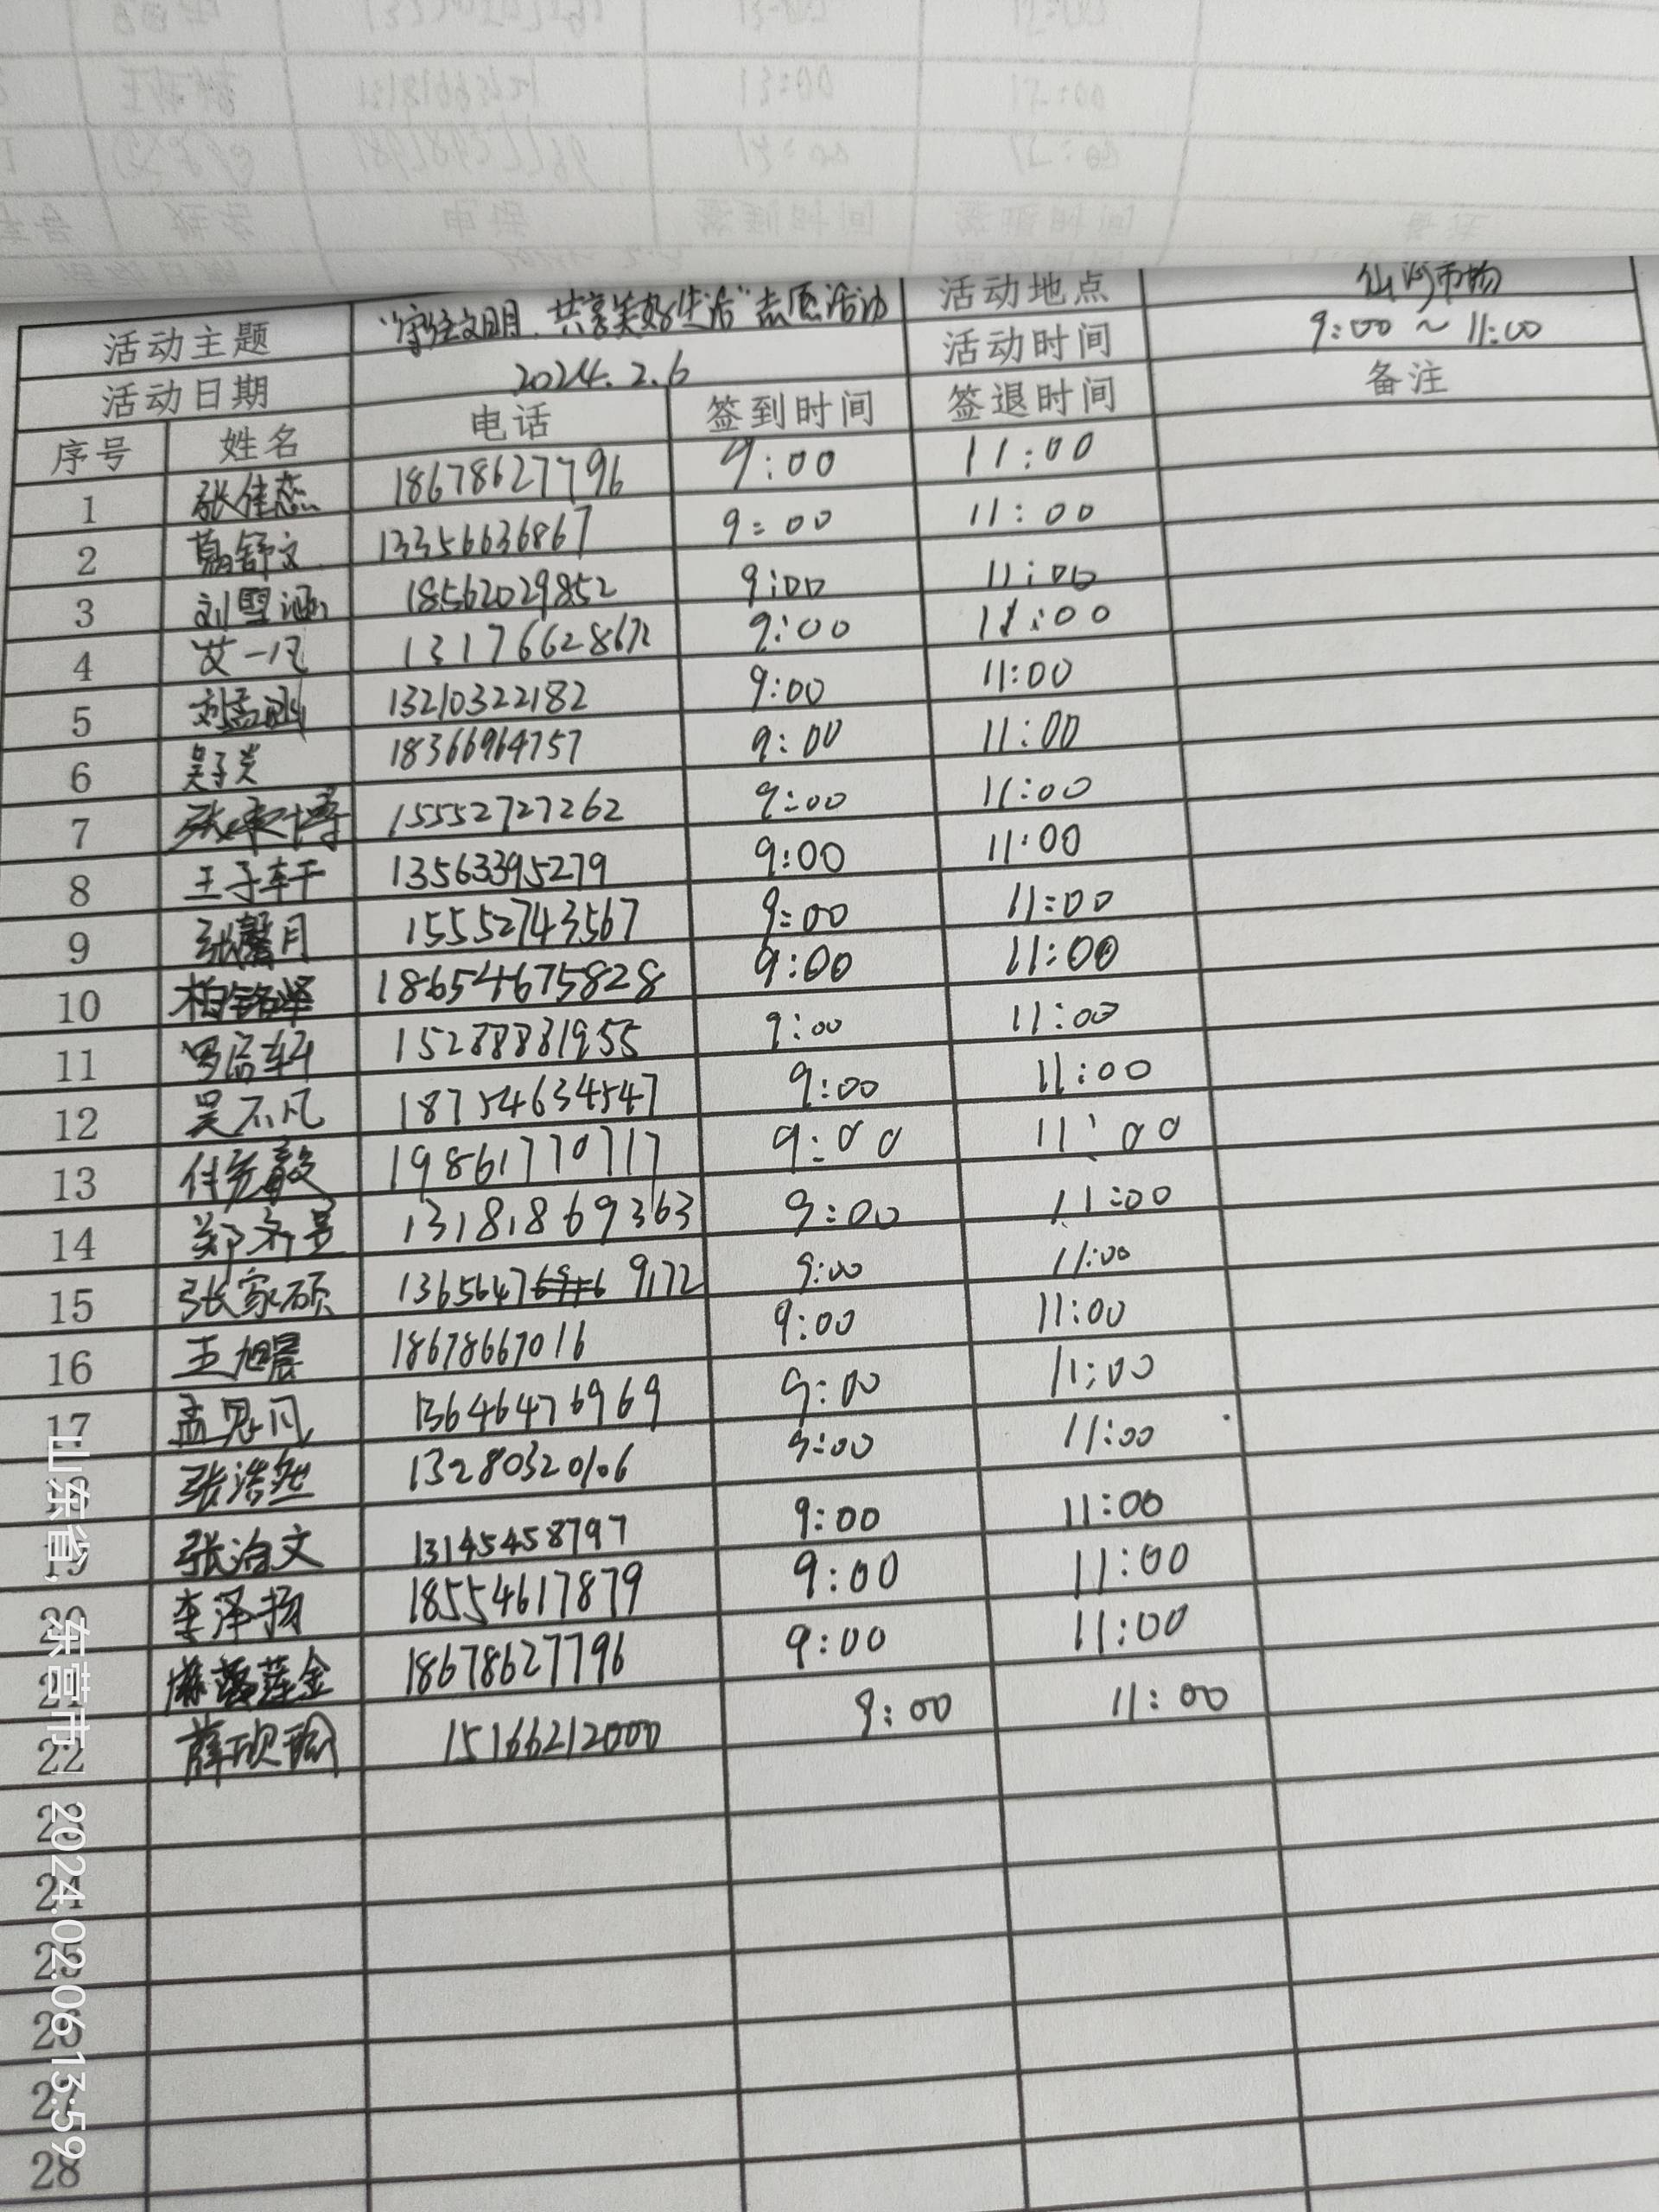 活动主题 "守住文明、共享美好生活"志愿活动 活动地点 仙河市场
活动日期 2024.2.6 活动时间 9:00～11:00
序号 姓名 电话 签到时间 签退时间 备注
1 张佳恋 18678627796 9:00 11:00
2 舒文 13356636867 9:00 11:00
3 刘 涵 18562029852 9:00 11:00
4 艾一凡 9:00 11:00
5 刘孟 13210322182 9:00 11:00
6 吴子炎 18366964757 9:00 11:00
7 张 博 15552727262 9:00 11:00
8 王子轩 13563395279 9:00 11:00
9 张馨月 15552743567 9:00 11:00
10 柏铭泽 18654675828 9:00 11:00
11 罗孟轩 15288831955 9:00 11:00
12 吴不凡 18754634547 9:00 11:00
13 19861770717 9:00 11:00
14 郑 13181869363 9:00 11:00
15 张家硕 1365647 9172 9:00 11:00
16 王旭晨 18678667016 9:00 11:00
17 孟思凡 13646476969 9:00 11:00
张浩然 9:00 11:00
19 张治文 13145458797 9:00 11:00
20 李泽扬 18554617879 9:00 11:00
21 18678627796 9:00 11:00
22 薛欣 15166212000 9:00 11:00
23
24
25
26
27
28
山东省, 东营市 2024.02.06 13:59